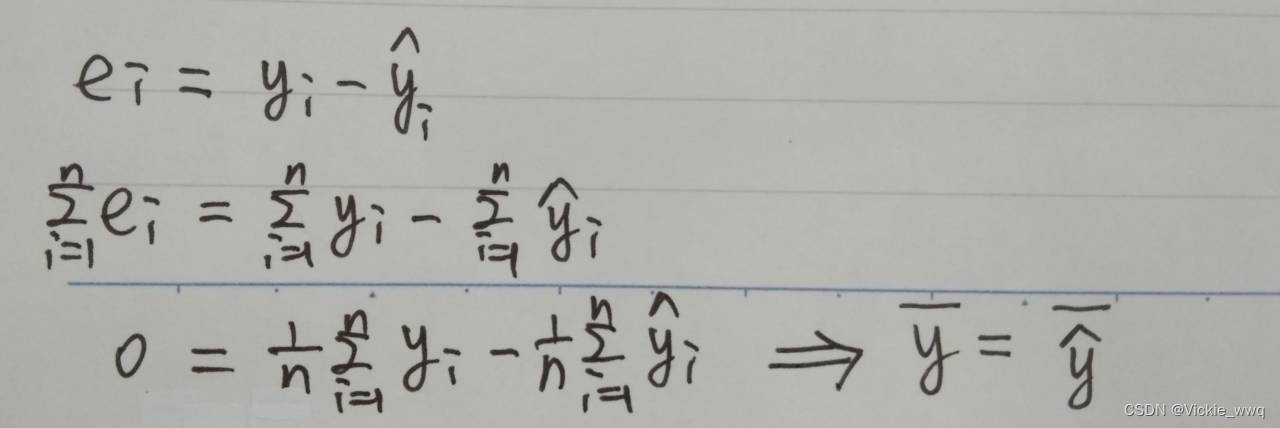 eᵢ = yᵢ − ŷᵢ
∑ᵢ₌₁ⁿ eᵢ = ∑ᵢ₌₁ⁿ yᵢ − ∑ᵢ₌₁ⁿ ŷᵢ
0 = 1/n ∑ᵢ₌₁ⁿ yᵢ − 1/n ∑ᵢ₌₁ⁿ ŷᵢ ⟹ y̅ = ŷ̅
CSDN @Vickie_wwq